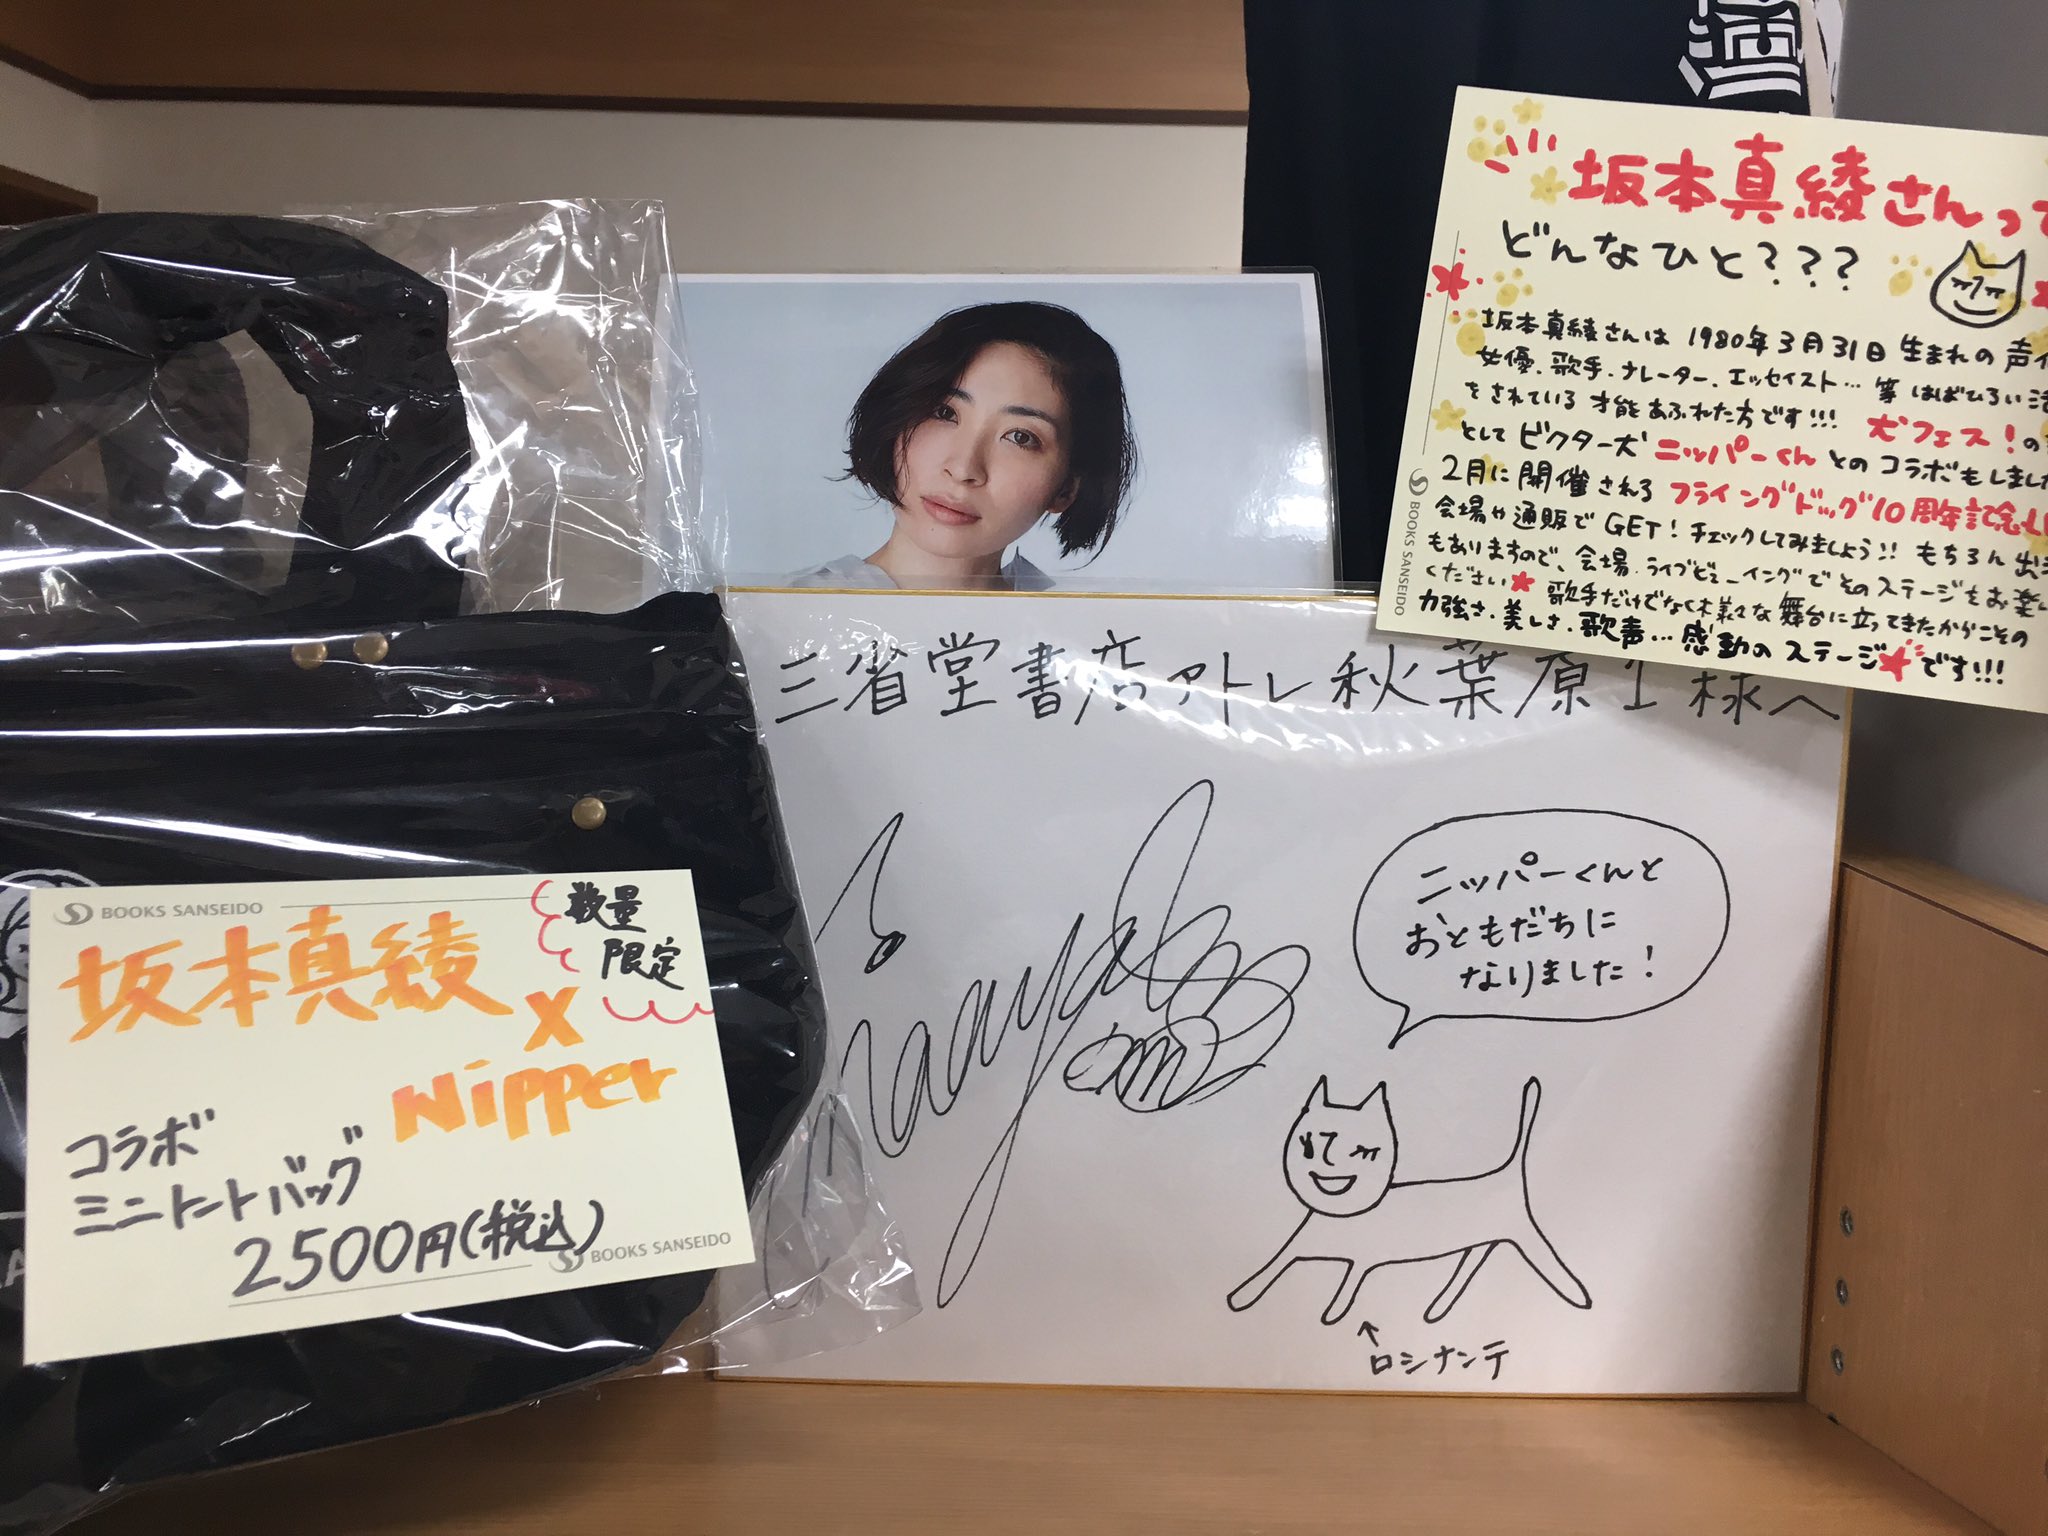 坂本真綾さんって
どんなひと???
坂本真綾さんは 1980年3月31日 生まれの 声
女優、歌手、ナレーター、エッセイスト… 等 はばひろい活
をされている 才能あふれた方です!!! 犬フェス!の
として ビクター犬 ニッパーくん とのコラボもしました
2月に開催される フライングドッグ10周年記念LI
会場や通販でGET!チェックしてみましょう!! もちろん 出
もありますので、会場・ライブビューイングでそのステージをお楽し
ください★ 歌手だけでなく様々な舞台に立ってきたからこその
力強さ、美しさ、歌声…感動のステージ★です!!!
BOOKS SANSEIDO
三省堂書店アトレ秋葉原1様へ
Maaya
ニッパーくんと
おともだちに
なりました!
↑
ロシナンテ
BOOKS SANSEIDO
数量
限定
坂本真綾
X
Nipper
コラボ
ミニトートバッグ
2500円(税込)
BOOKS SANSEIDO